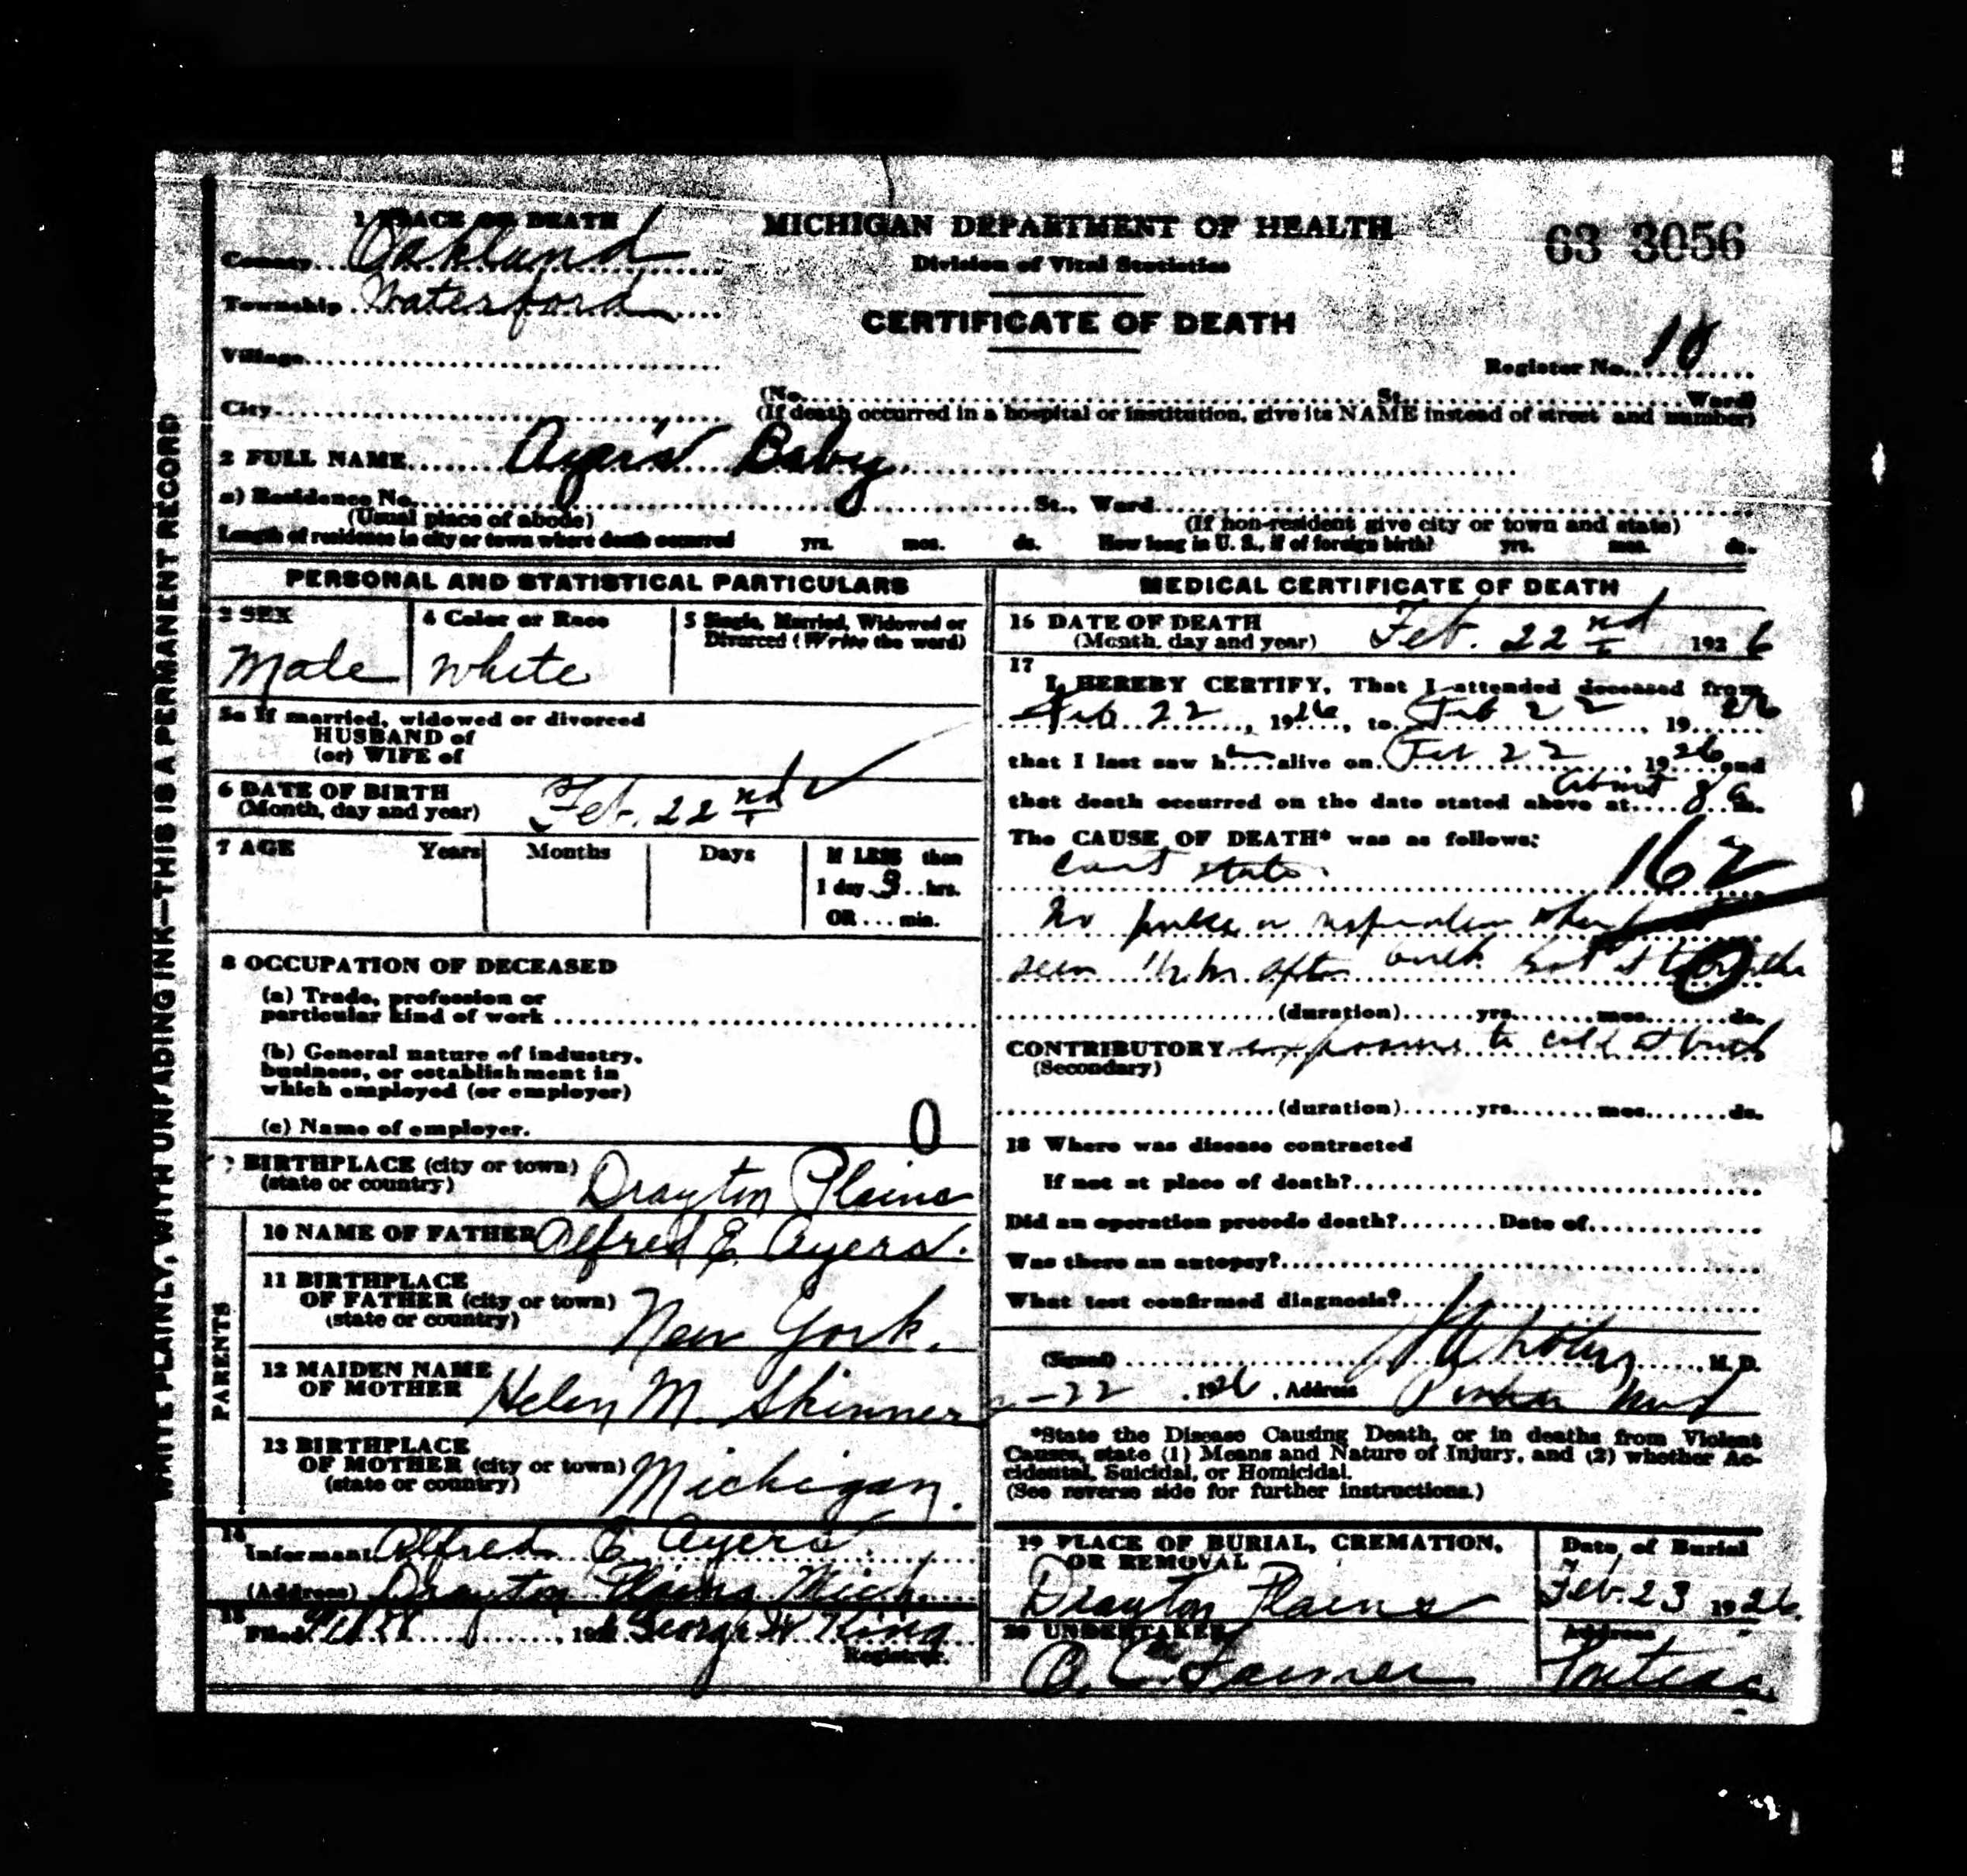 1 PLACE OF DEATH
County Oakland
Township Waterford
Village
City
MICHIGAN DEPARTMENT OF HEALTH
Division of Vital Statistics
CERTIFICATE OF DEATH
63 3056
Register No. 10
(No. St. Ward)
(If death occurred in a hospital or institution, give its NAME instead of street and number)
2 FULL NAME Baby
a) Residence No. St., Ward
(Usual place of abode)
(If non-resident give city or town and state)
Length of residence in city or town where death occurred yrs. mos. ds. How long in U. S., if of foreign birth? yrs. mos. ds.
PERSONAL AND STATISTICAL PARTICULARS
3 SEX
Male
4 Color or Race
White
5 Single, Married, Widowed or
Divorced (Write the word)
5a If married, widowed or divorced
HUSBAND of
(or) WIFE of
6 DATE OF BIRTH
(Month, day and year) Feb. 22nd
7 AGE Years Months Days
If LESS than
1 day 3 hrs.
OR ... min.
8 OCCUPATION OF DECEASED
(a) Trade, profession or
particular kind of work
(b) General nature of industry,
business, or establishment in
which employed (or employer)
(c) Name of employer. 0
9 BIRTHPLACE (city or town)
(state or country) Drayton Plains
PARENTS
10 NAME OF FATHER Alfred E. Ayers.
11 BIRTHPLACE
OF FATHER (city or town)
(state or country) New York.
12 MAIDEN NAME
OF MOTHER Helen M. Skinner
13 BIRTHPLACE
OF MOTHER (city or town)
(state or country) Michigan.
14
Informant Alfred E Ayers
(Address) Drayton Plains Mich.
15
Filed 192 George W King
Registrar.
MEDICAL CERTIFICATE OF DEATH
16 DATE OF DEATH
(Month, day and year) Feb. 22nd 1926
17
I HEREBY CERTIFY, That I attended deceased from
Feb 22, 1926, to Feb 22, 1926
that I last saw h alive on Feb 22, 1926 and
that death occurred on the date stated above at about 8 a m.
The CAUSE OF DEATH* was as follows:
Can't state. 162
No pulse or respiration when
seen 1/2 hr after birth 0
(duration) yrs. mos. ds.
CONTRIBUTORY exposure to cold at birth
(Secondary)
(duration) yrs. mos. ds.
18 Where was disease contracted
If not at place of death?
Did an operation precede death? Date of
Was there an autopsy?
What test confirmed diagnosis?
(Signed) M. D.
-22, 1926, Address
*State the Disease Causing Death, or in deaths from Violent
Causes, state (1) Means and Nature of Injury, and (2) whether Ac-
cidental, Suicidal, or Homicidal.
(See reverse side for further instructions.)
19 PLACE OF BURIAL, CREMATION,
OR REMOVAL
Drayton Plains
Date of Burial
Feb. 23 1926.
20 UNDERTAKER
Farmer
Address
Pontiac.
WRITE PLAINLY, WITH UNFADING INK—THIS IS A PERMANENT RECORD